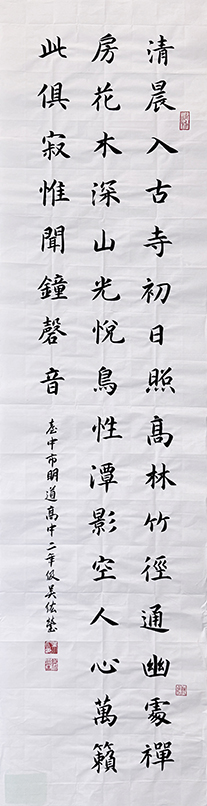 清晨入古寺初日照高林竹徑通幽處禪
房花木深山光悅鳥性潭影空人心萬籟
此俱寂惟聞鐘磬音
臺中市明道高中二年級吳